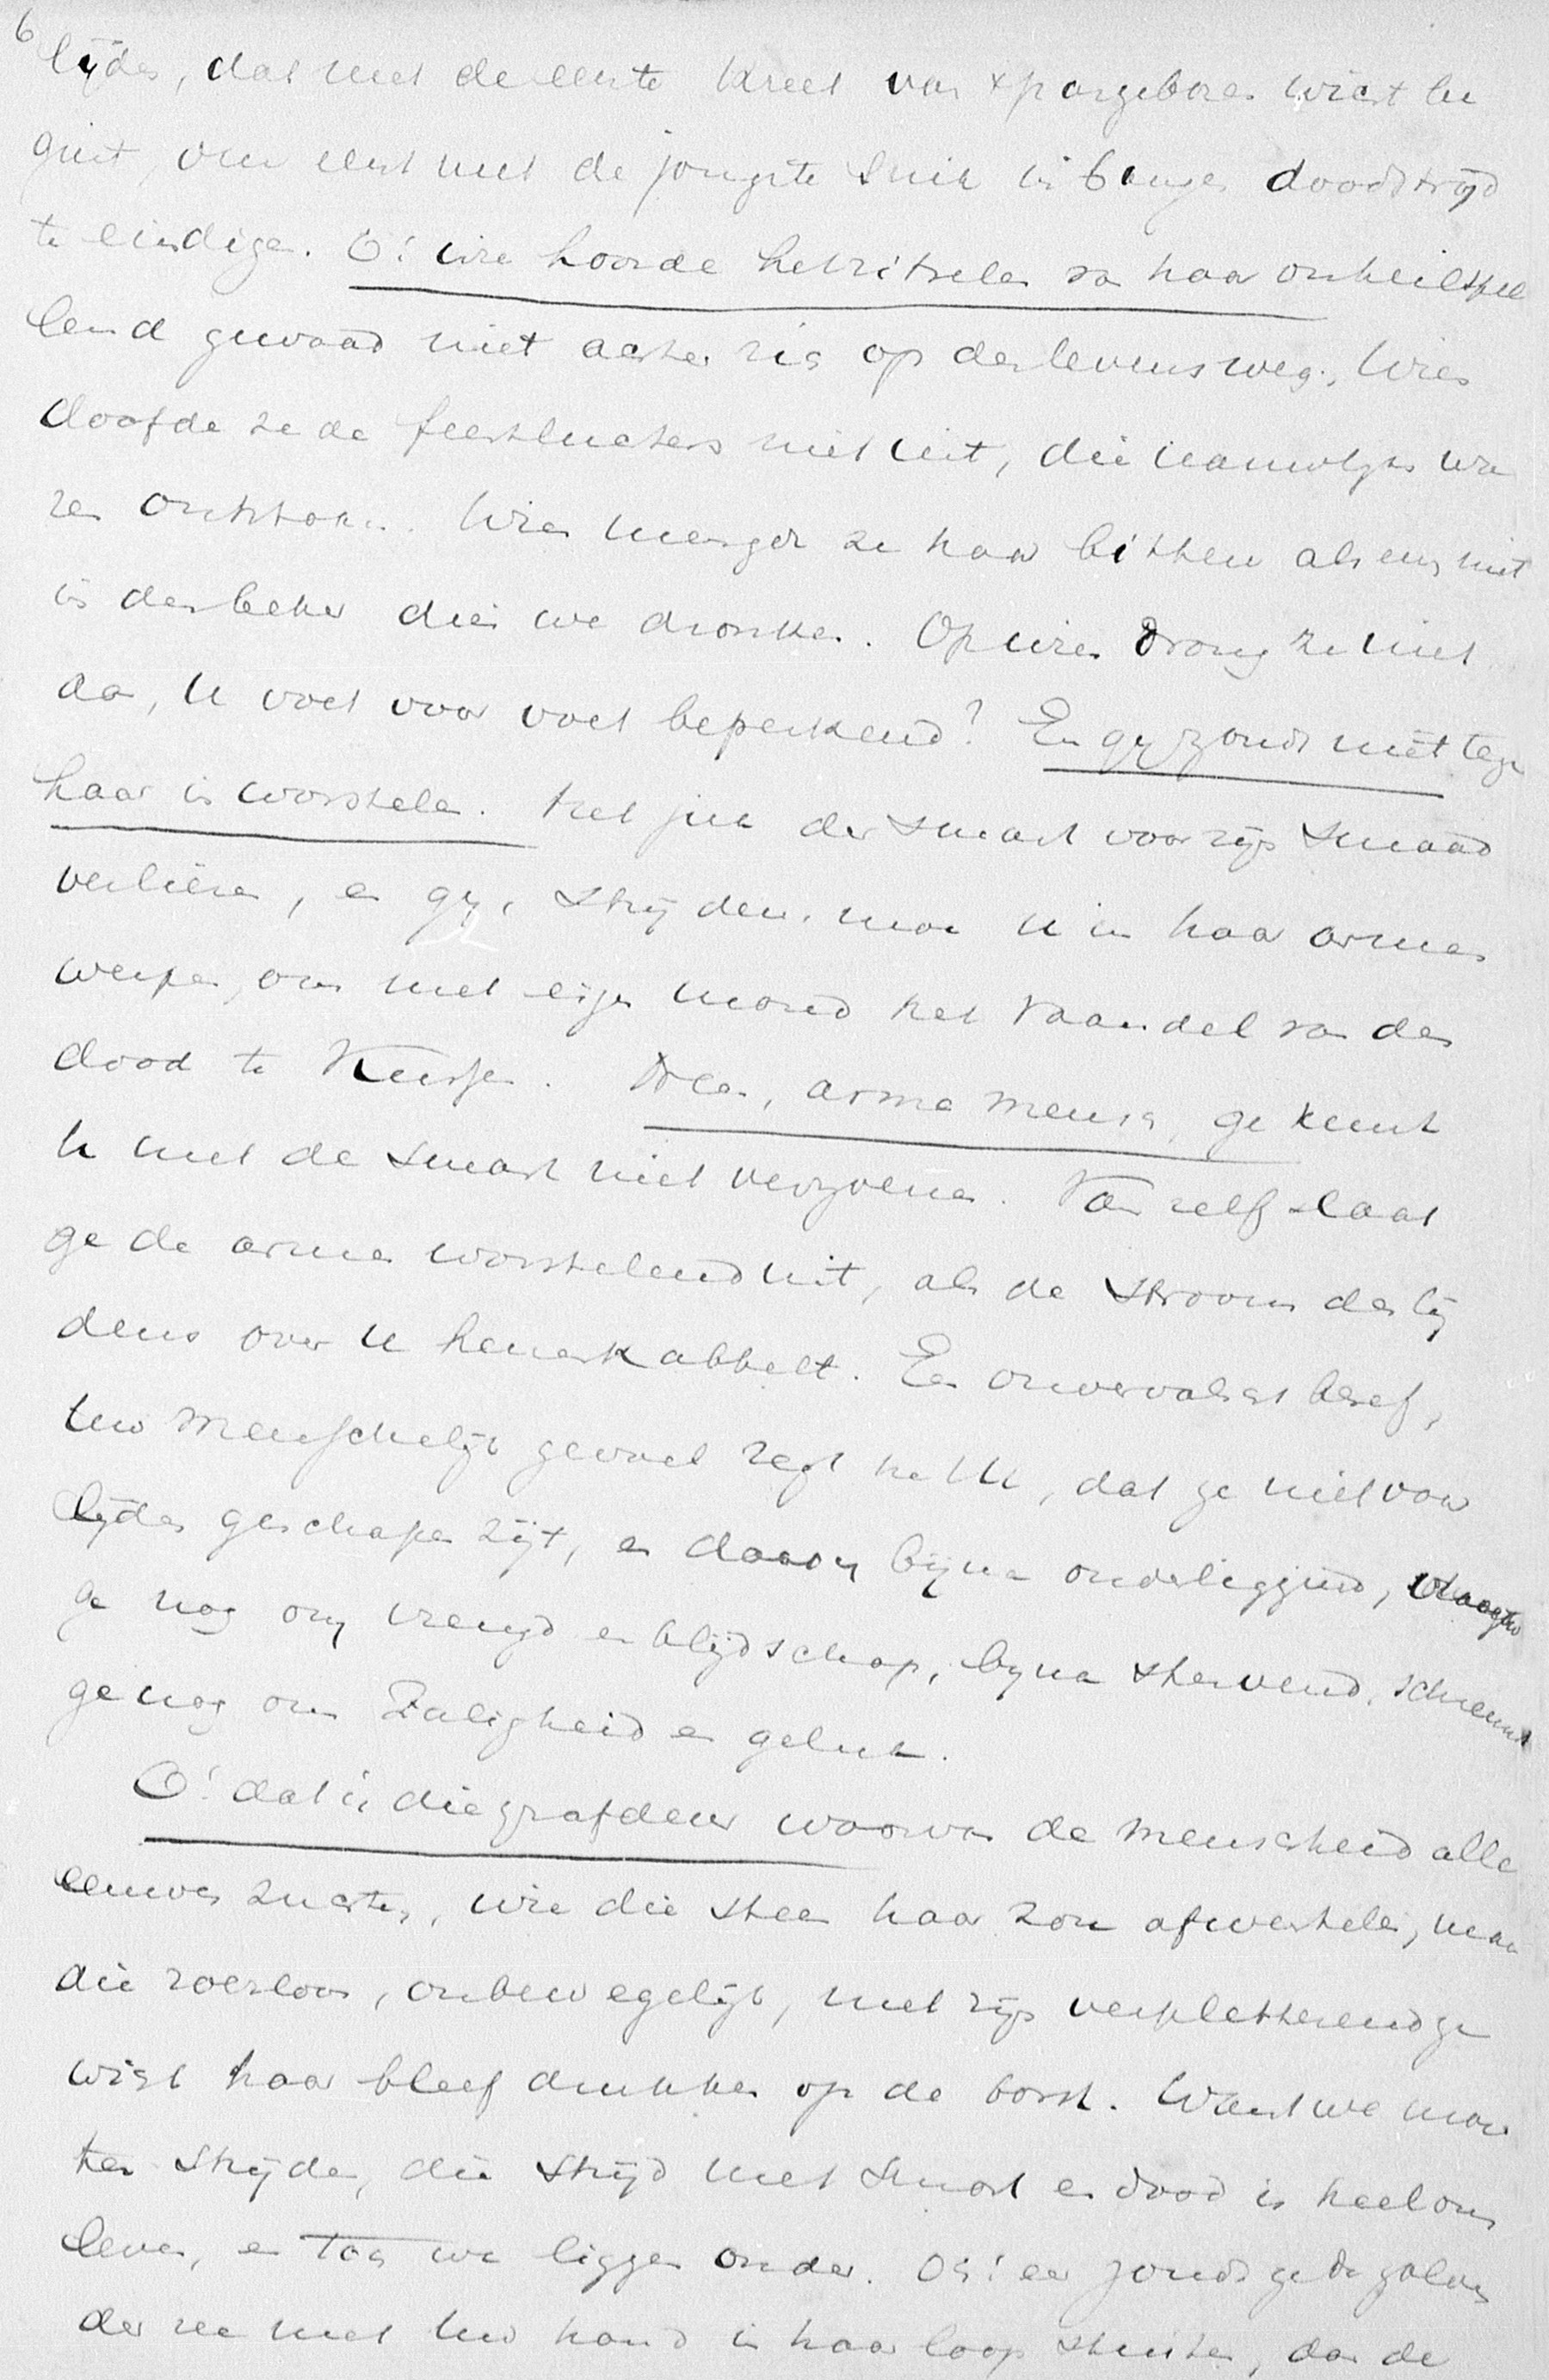 6
lijden, dat met de eerste kreet van 't pasgeboren wicht be
gint, om eerst met de jongste snik in bangen doodstrijd
te eindigen. O! wie hoorde het ritselen van haar onheilspel
lend gewaad niet achter zich op den levensweg. Wien
doofde ze de feestluchters niet uit, die nauwelijks wa
ren ontstoken. Wien mengde ze haar bitteren alsem niet
in den beker dien we dronken. Op wien drong ze niet
aan, U voet voor voet beperkend? En gij zoudt niet tegen
haar in worstelen. Het juk der smart voor zijn smaad
verliezen, en gij, strijdensmoe U in haar armen
werpen, om met eigen mond het vaandel van den
dood te kussen. Neen, arme mensch, ge kunt
U met de smart niet verzoenen. Van zelf slaat
ge de armen worstelend uit, als de stroom des lij
dens over U henenkabbelt. Een onvervalscht besef,
Uw menschelijk gevoel zegt het U, dat ge niet voor
lijden geschapen zijt, en daarom bijna onderliggend, vraagt
ge nog om vreugd en blijdschap, bijna stervend, schreeuwt
ge nog om Zaligheid en geluk.
O! dat is die grafdeur waarvan de menscheid alle
eeuwen zuchtten, wie die steen haar zou afwentelen, maar
die roerloos, onbewegelijk, met zijn verpletterend ge
wicht haar bleef drukken op de borst. Want we moe
ten strijden, die strijd met smart en dood is heel ons
leven, en toch we liggen onder. Och! eer zoudt ge de golven
der zee met Uw hand in haar loop stuiten, dan de